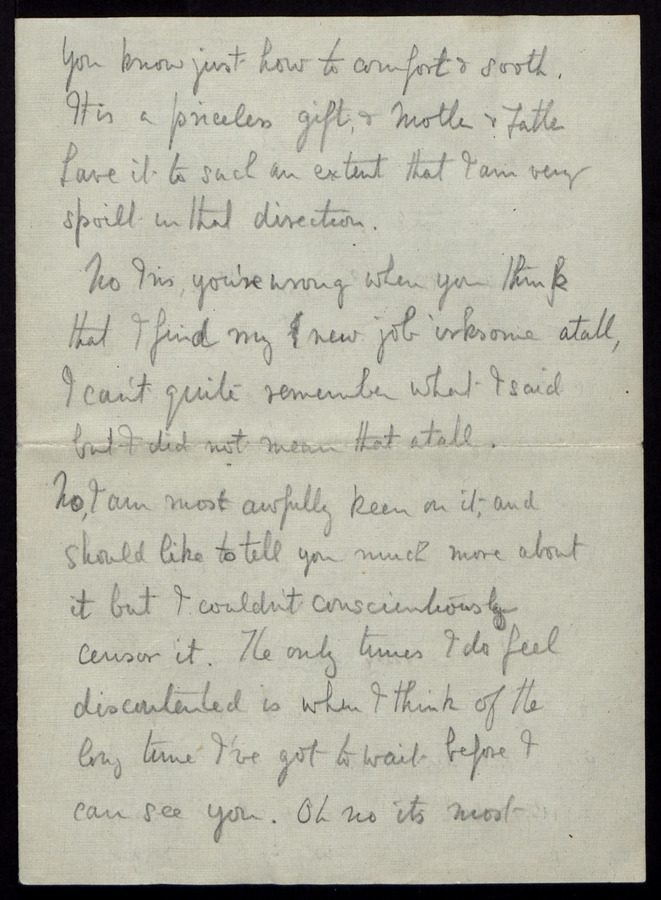 You know just how to comfort & sooth.
It is a priceless gift, & Mother & Father
have it to such an extent that I am very
spoilt in that direction.
No Iris, you're wrong when you think
that I find my new job irksome atall,
I can't quite remember what I said
but I did not mean that atall.
No, I am most awfully keen on it, and
should like to tell you much more about
it but I couldn't conscientiously
censor it. The only times I do feel
discontented is when I think of the
long time I've got to wait before I
can see you. Oh no its most